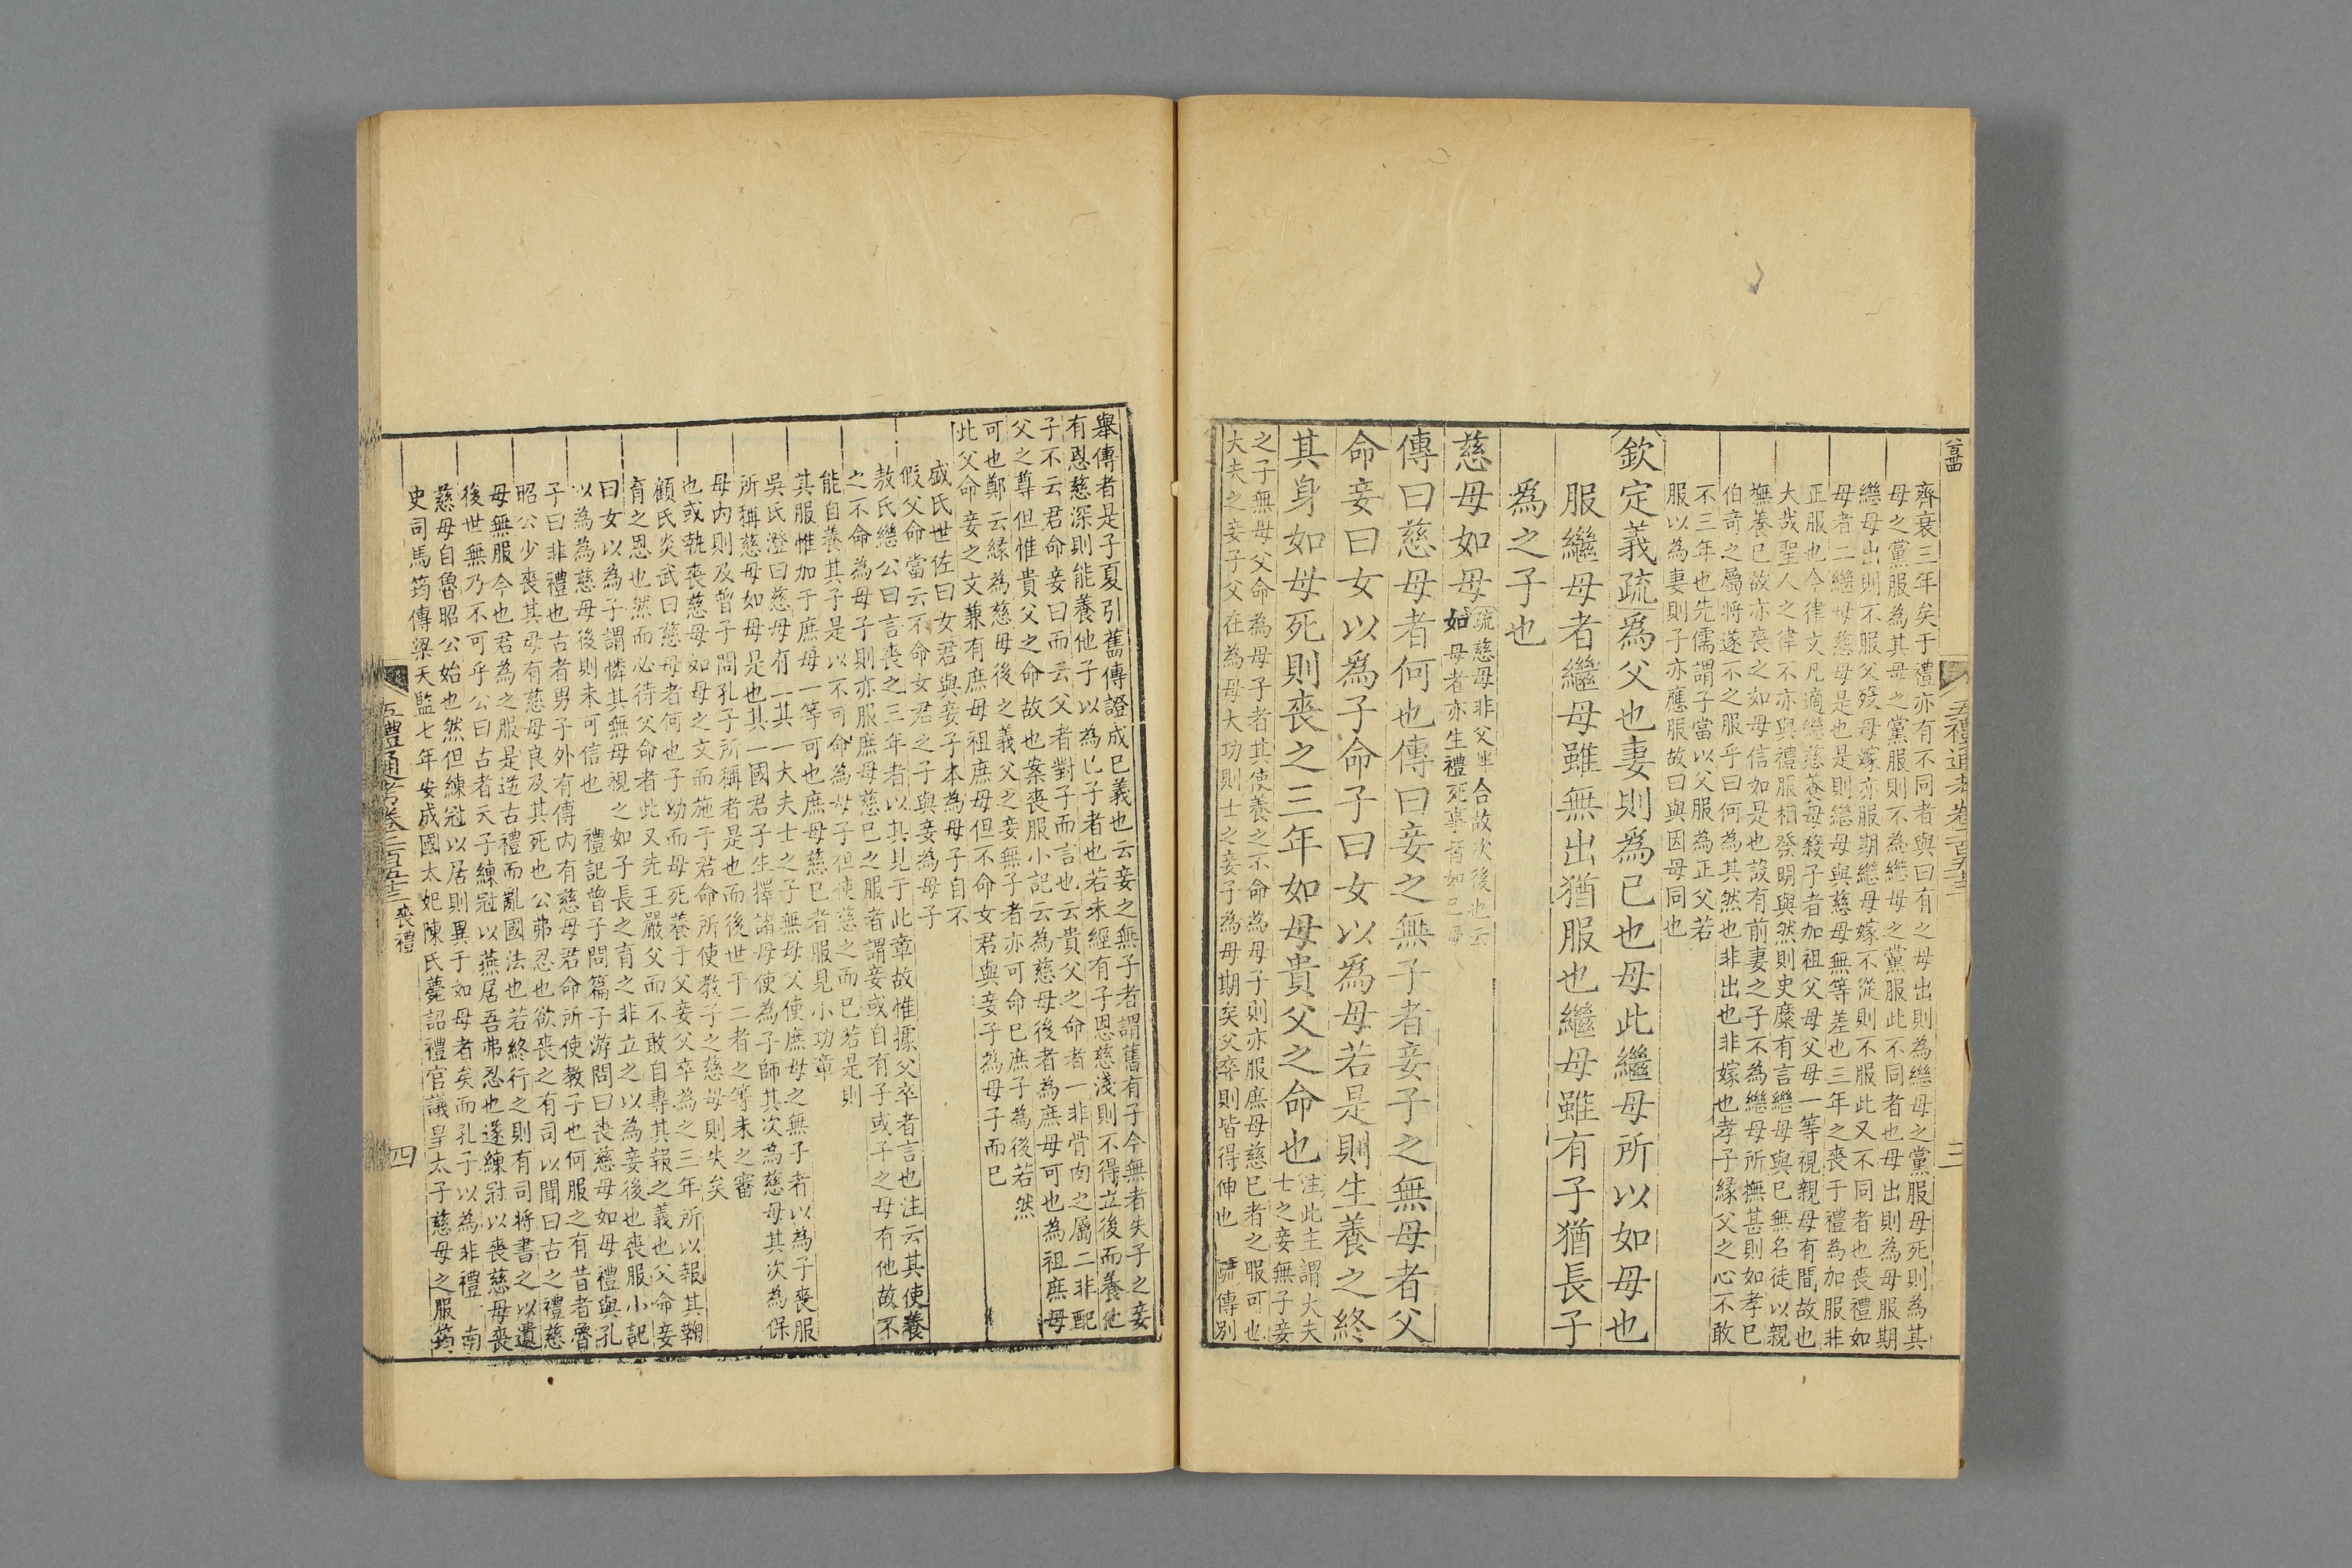 齊衰三年矣于禮亦有不同者與曰有之母出則為繼母之黨服母死則為其
母之黨服為其母之黨服則不為繼母之黨服此不同者也母出則為母服期
繼母出則不服父歿母嫁亦服期繼母嫁不從則不服此又不同者也喪禮如
母者二繼母慈母是也是則繼母與慈母無等差也三年之喪于禮為加服非
正服也今律文凡適繼慈養母殺子者加祖父母父母一等視親母有間故也
大哉聖人之律不亦與禮服相發明與然則史糜有言繼母與已無名徒以親
撫養已故亦喪之如母信如是也設有前妻之子不為繼母所撫甚則如孝已
伯奇之屬將遂不之服乎曰何為其然也非出也非嫁也孝子緣父之心不敢
不三年也先儒謂子當以父服為正父若
服以為妻則子亦應服故曰與因母同也
欽定義疏爲父也妻則爲已也母此繼母所以如母也
服繼母者繼母雖無出猶服也繼母雖有子猶長子
爲之子也
慈母如母
疏慈母非父胖合故次後也云
如母者亦生禮死事皆如已母
傳曰慈母者何也傳曰妾之無子者妾子之無母者父
命妾曰女以爲子命子曰女以爲母若是則生養之終
其身如母死則喪之三年如母貴父之命也
注此主謂大夫
士之妾無子妾
之子無母父命為母子者其使養之不命為母子則亦服庶母慈已者之服可也
大夫之妾子父在為母大功則士之妾子為母期矣父卒則皆得伸也 疏傳別
五禮通考卷二百五十三
三
舉傳者是子夏引舊傳證成已義也云妾之無子者謂舊有子今無者失子之妾
有恩慈深則能養他子以為已子者也若未經有子恩慈淺則不得立後而養他
子不云君命妾曰而云父者對子而言也云貴父之命者一非骨肉之屬二非配
父之尊但惟貴父之命故也案喪服小記云為慈母後者為庶母可也為祖庶母
可也鄭云緣為慈母後之義父之妾無子者亦可命已庶子為後若然
此父命妾之文兼有庶母祖庶母但不命女君與妾子為母子而已
盛氏世佐曰女君與妾子本為母子自不
假父命當云不命女君之子與妾為母子
敖氏繼公曰言喪之三年者以其見于此章故惟據父卒者言也注云其使養
之不命為母子則亦服庶母慈已之服者謂妾或自有子或子之母有他故不
能自養其子是以不可命為母子但使慈之而已若是則
其服惟加于庶母一等可也庶母慈已者服見小功章
吳氏澄曰慈母有二其一大夫士之子無母父使庶母之無子者以為子喪服
所稱慈母如母是也其一國君子生擇諸母使為子師其次為慈母其次為保
母內則及曾子問孔子所稱者是也而後世于二者之等未之審
也或執喪慈母如母之文而施于君命所使教子之慈母則失矣
顧氏炎武曰慈母者何也子幼而母死養于父妾父卒為之三年所以報其鞠
育之恩也然而必待父命者此又先王嚴父而不敢自專其報之義也父命妾
曰女以為子謂憐其無母視之如子長之育之非立之以為妾後也喪服小記
以為為慈母後則未可信也 禮記曾子問篇子游問曰喪慈母如母禮與孔
子曰非禮也古者男子外有傳內有慈母君命所使教子也何服之有昔者魯
昭公少喪其母有慈母良及其死也公弗忍也欲喪之有司以聞曰古之禮慈
母無服今也君為之服是逆古禮而亂國法也若終行之則有司將書之以遺
後世無乃不可乎公曰古者天子練冠以燕居吾弗忍也遂練冠以喪慈母喪
慈母自魯昭公始也然但練冠以居則異于如母者矣而孔子以為非禮 南
史司馬筠傳梁天監七年安成國太妃陳氏薨詔禮官議皇太子慈母之服筠
五禮通考卷二百五十三 喪禮
四